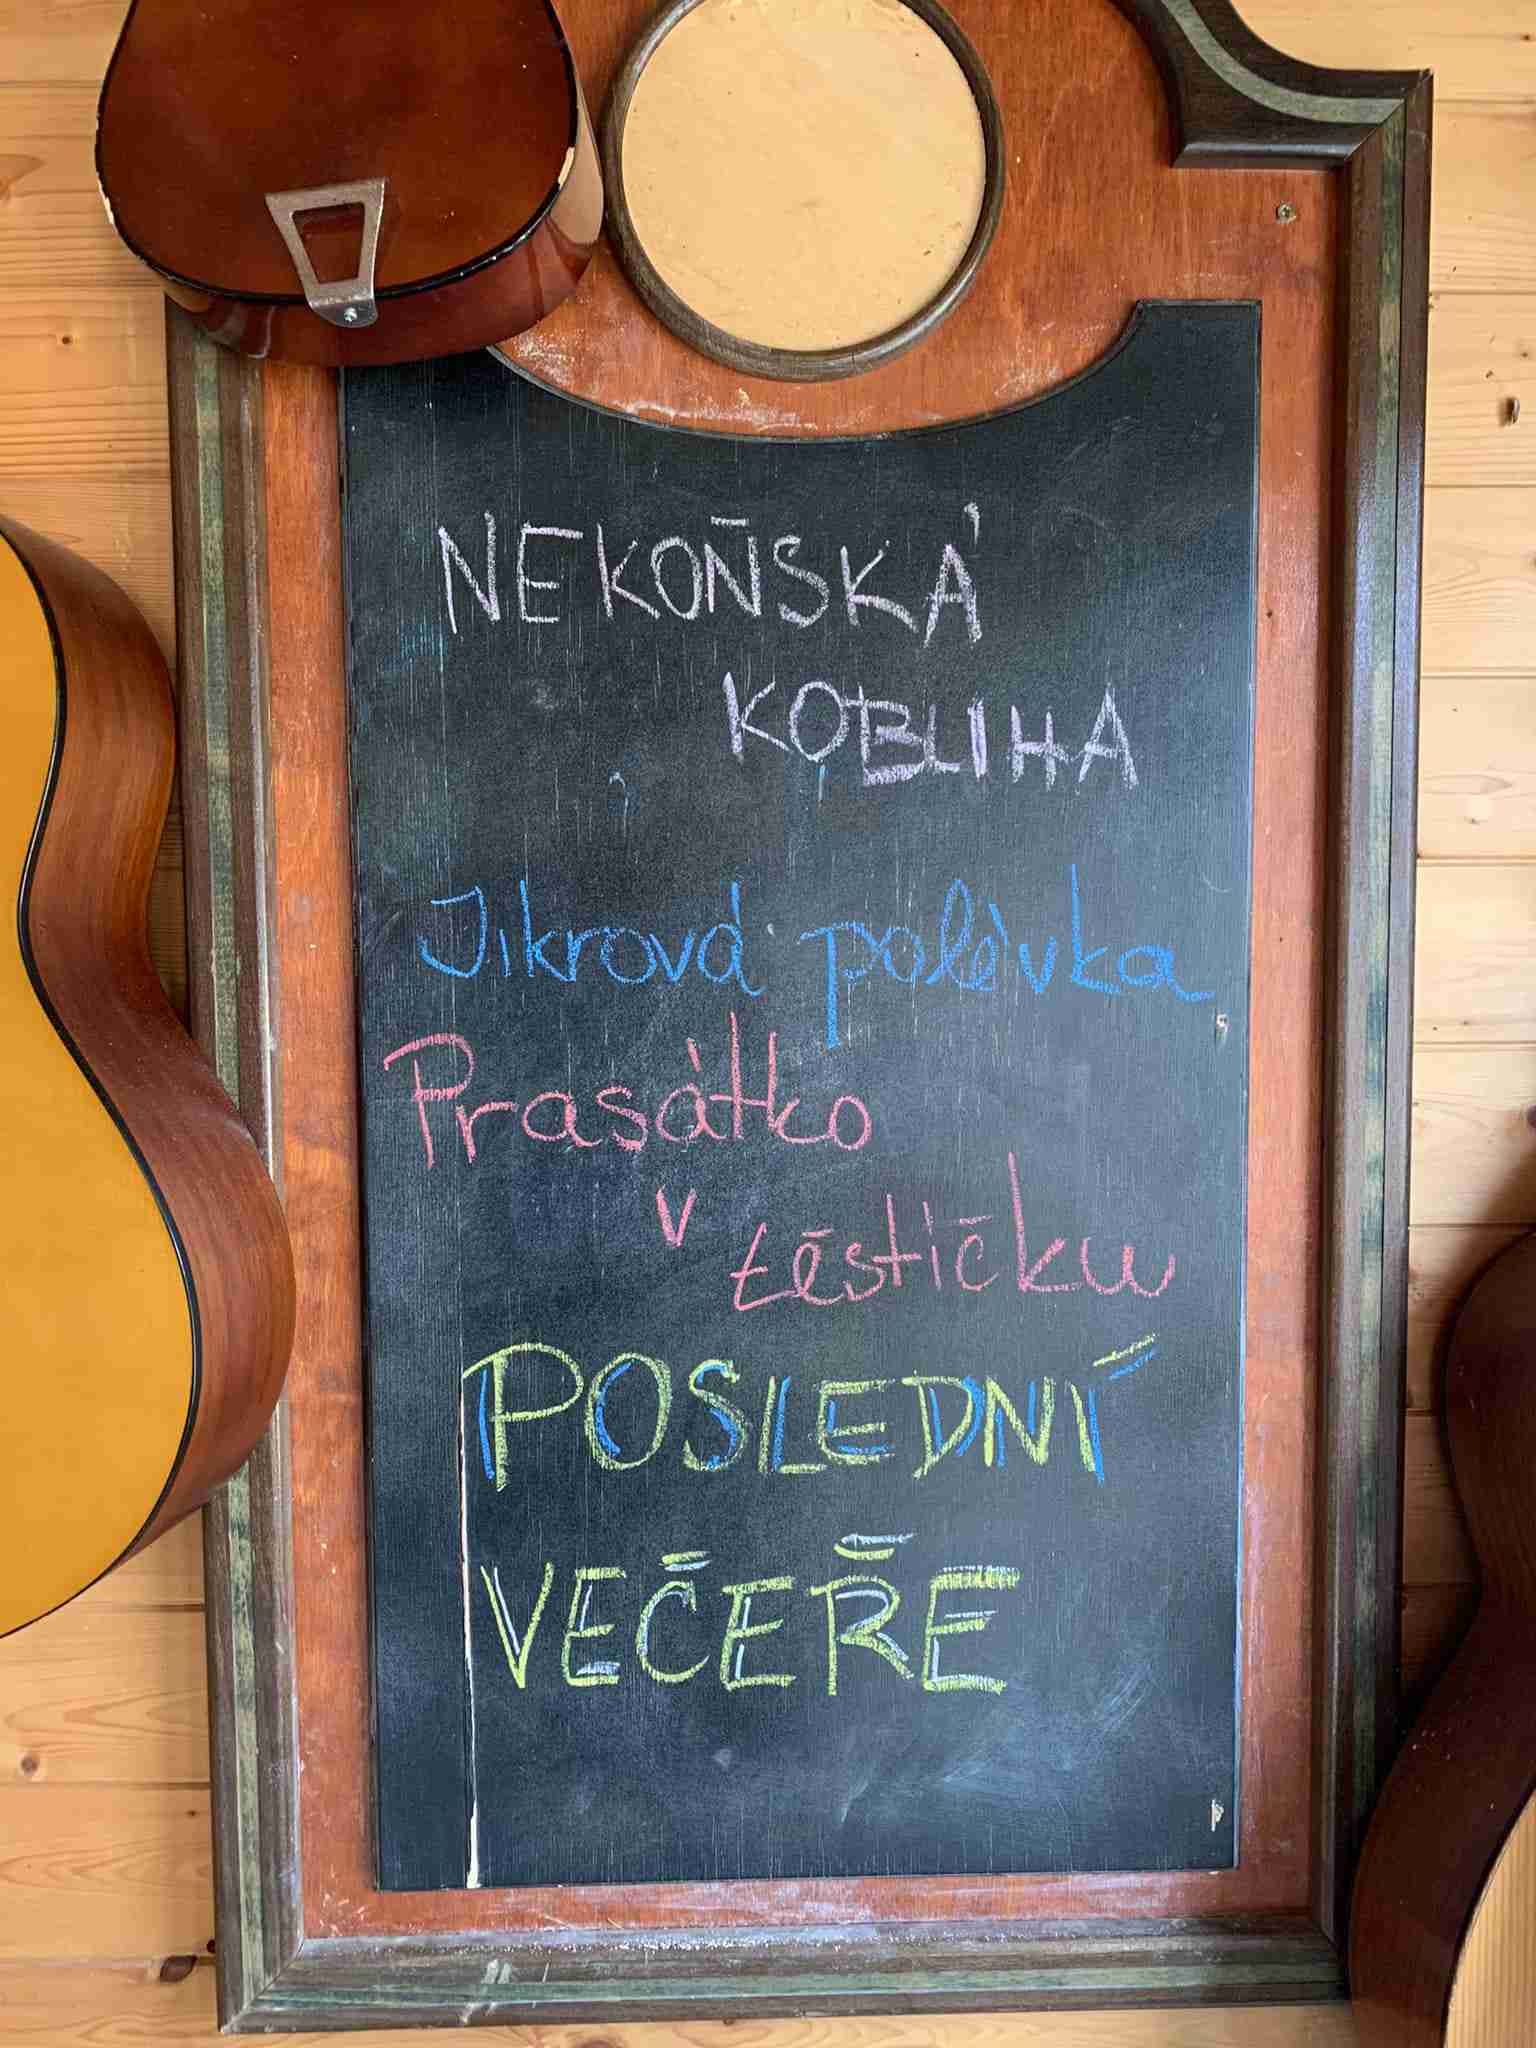 NEKOŇSKÁ
KOBLIHA
Jikrová polévka
Prasátko
v těstíčku
POSLEDNÍ
VEČEŘE